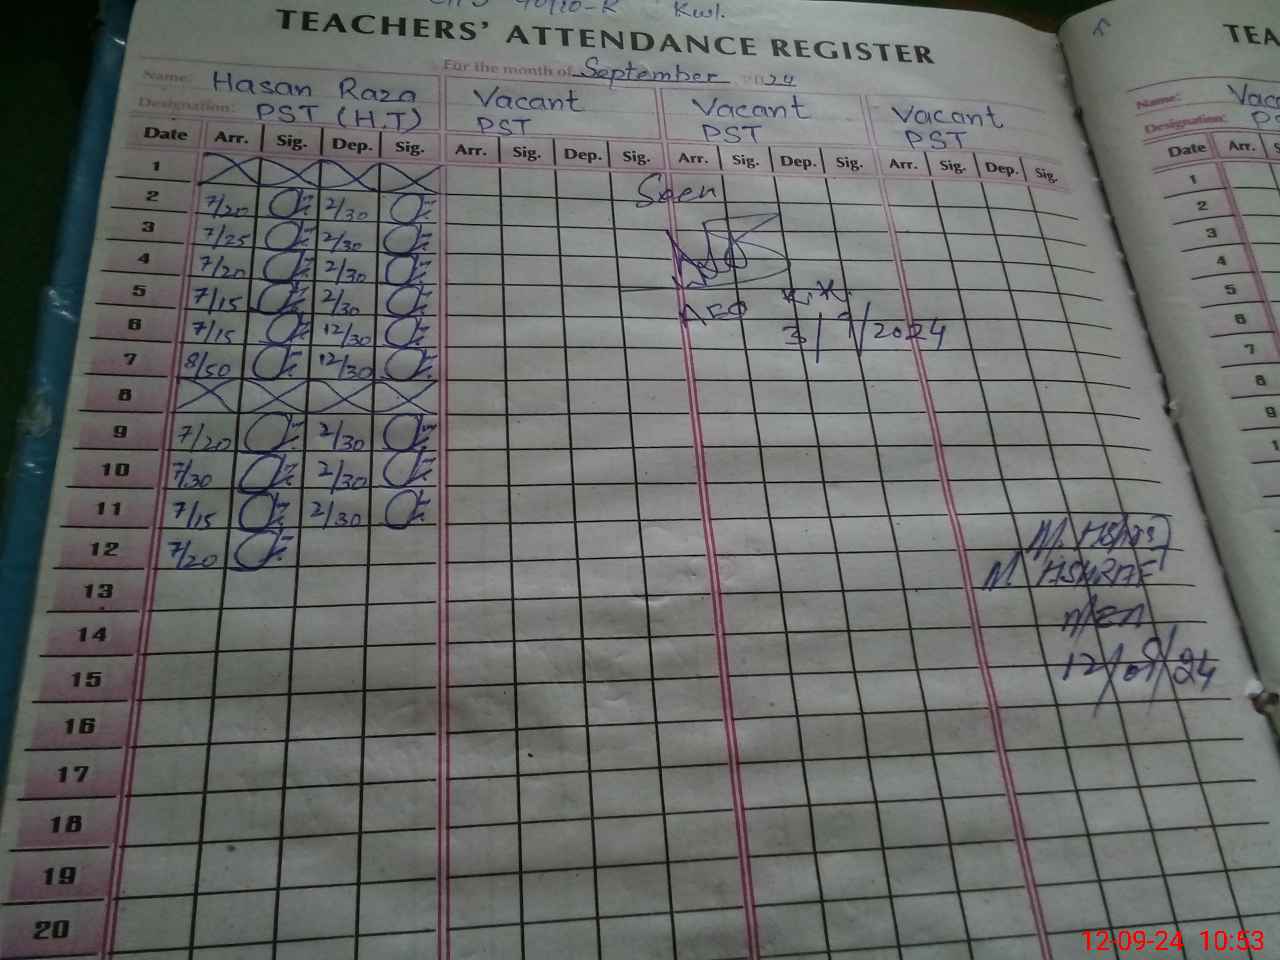 Kwl.
TEACHERS' ATTENDANCE REGISTER
For the month of September 2024
Name: Hasan Raza Vacant Vacant Vacant
Designation: PST (H.T) PST PST PST
Date Arr. Sig. Dep. Sig. Arr. Sig. Dep. Sig. Arr. Sig. Dep. Sig. Arr. Sig. Dep. Sig.
1
2 7/20 2/30
3 7/25 2/30
4 7/20 2/30
5 7/15 2/30
6 7/15 12/30
7 8/50 12/30
8
9 7/20 2/30
10 7/30 2/30
11 7/15 2/30
12 7/20
13
14
15
16
17
18
19
20
Seen
AEO
3/9/2024
M. ASHRAF
12/09/24
TEA
Name: Vac
Designation: PS
Date Arr. S
1
2
3
4
5
6
7
8
9
1
12-09-24 10:53